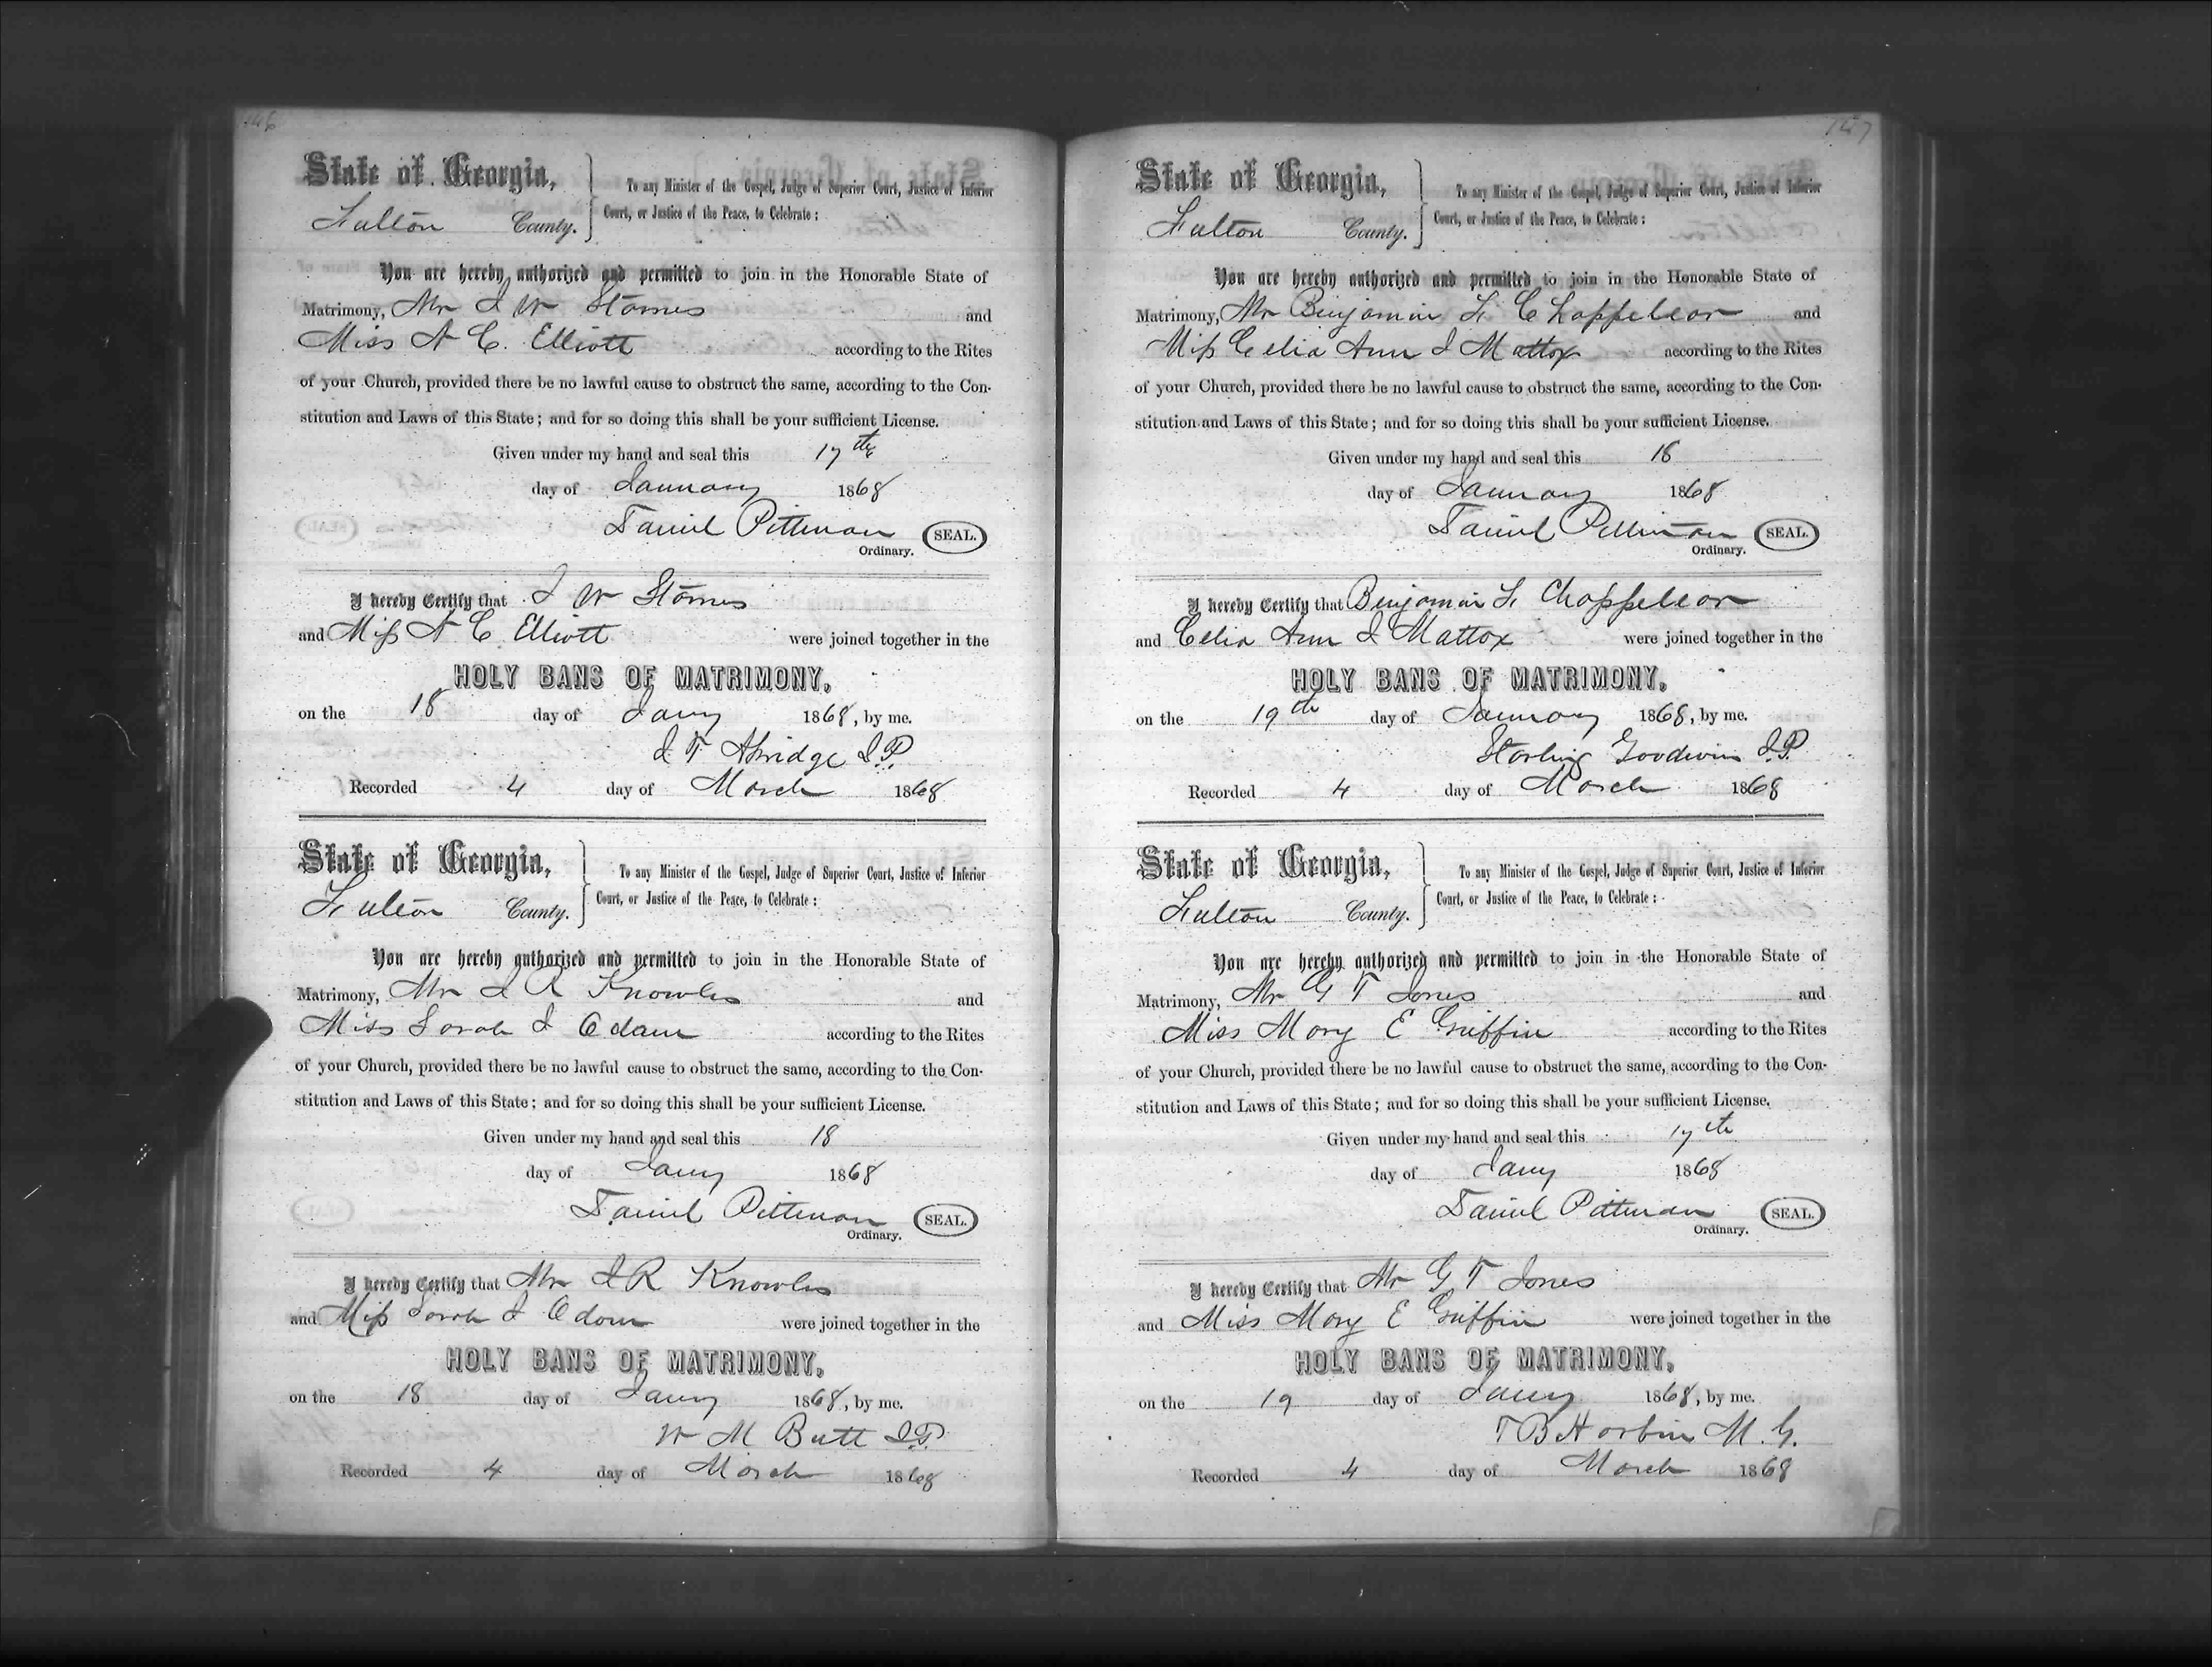 146
State of Georgia,
Fulton County.
To any Minister of the Gospel, Judge of Superior Court, Justice of Inferior
Court, or Justice of the Peace, to Celebrate:
You are hereby authorized and permitted to join in the Honorable State of
Matrimony, Mr J W Starnes and
Miss N C. Elliott according to the Rites
of your Church, provided there be no lawful cause to obstruct the same, according to the Con-
stitution and Laws of this State; and for so doing this shall be your sufficient License.
Given under my hand and seal this 17th
day of January 1868
Daniel Pittman SEAL.
Ordinary.
I hereby Certify that J W Starnes
and Miss N C Elliott were joined together in the
HOLY BANS OF MATRIMONY,
on the 18 day of Jany 1868, by me.
J T Akridge J.P.
Recorded 4 day of March 1868
State of Georgia,
Fulton County.
To any Minister of the Gospel, Judge of Superior Court, Justice of Inferior
Court, or Justice of the Peace, to Celebrate:
You are hereby authorized and permitted to join in the Honorable State of
Matrimony, Mr J R Knowles and
Miss Sarah J Odam according to the Rites
of your Church, provided there be no lawful cause to obstruct the same, according to the Con-
stitution and Laws of this State; and for so doing this shall be your sufficient License.
Given under my hand and seal this 18
day of Jany 1868
Daniel Pittman SEAL.
Ordinary.
I hereby Certify that Mr J R Knowles
and Miss Sarah J Odam were joined together in the
HOLY BANS OF MATRIMONY,
on the 18 day of Jany 1868, by me.
W M Butt J.P.
Recorded 4 day of March 1868
147
State of Georgia,
Fulton County.
To any Minister of the Gospel, Judge of Superior Court, Justice of Inferior
Court, or Justice of the Peace, to Celebrate:
You are hereby authorized and permitted to join in the Honorable State of
Matrimony, Mr Benjamin F Chappelear and
Miss Celia Ann J Mattox according to the Rites
of your Church, provided there be no lawful cause to obstruct the same, according to the Con-
stitution and Laws of this State; and for so doing this shall be your sufficient License.
Given under my hand and seal this 18
day of January 1868
Daniel Pittman SEAL.
Ordinary.
I hereby Certify that Benjamin F Chappelear
and Celia Ann J Mattox were joined together in the
HOLY BANS OF MATRIMONY,
on the 19th day of January 1868, by me.
Starling Goodwin J.P.
Recorded 4 day of March 1868
State of Georgia,
Fulton County.
To any Minister of the Gospel, Judge of Superior Court, Justice of Inferior
Court, or Justice of the Peace, to Celebrate:
You are hereby authorized and permitted to join in the Honorable State of
Matrimony, Mr G T Jones and
Miss Mary E Griffin according to the Rites
of your Church, provided there be no lawful cause to obstruct the same, according to the Con-
stitution and Laws of this State; and for so doing this shall be your sufficient License.
Given under my hand and seal this 17th
day of Jany 1868
Daniel Pittman SEAL.
Ordinary.
I hereby Certify that Mr G T Jones
and Miss Mary E Griffin were joined together in the
HOLY BANS OF MATRIMONY,
on the 19 day of Jany 1868, by me.
T B Harbin M.G.
Recorded 4 day of March 1868